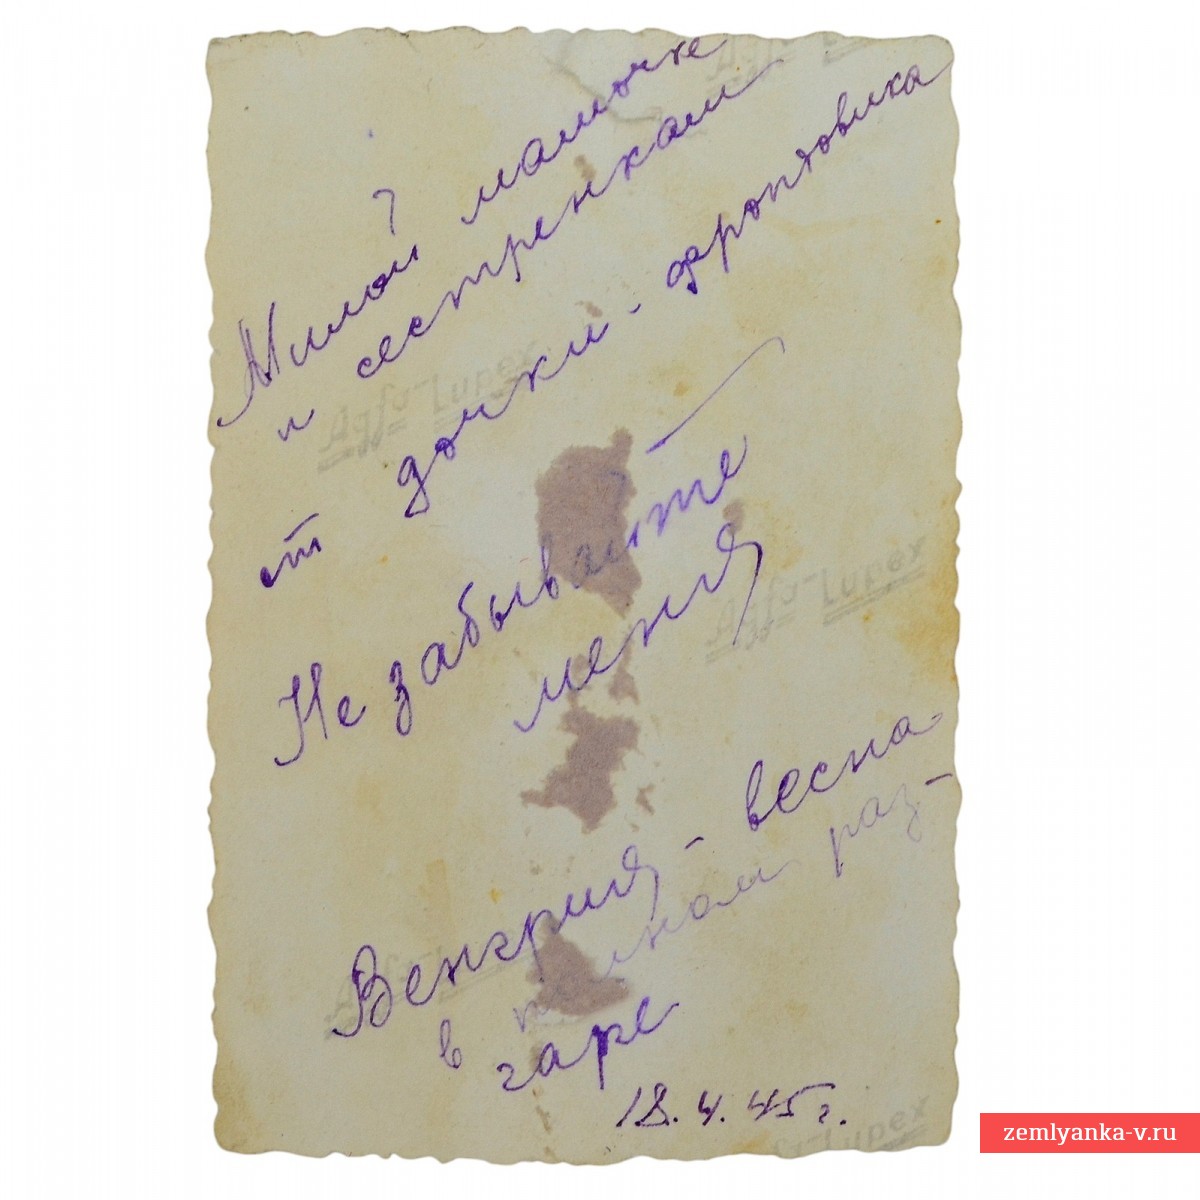 Милой мамочке
и сестренкам
от дочки - фронтовика
Не забывайте
меня
Венгрия - весна
в полном раз-
гаре
18.4.45 г.
Agfa-Lupex
Agfa-Lupex
Agfa-Lupex
zemlyanka-v.ru